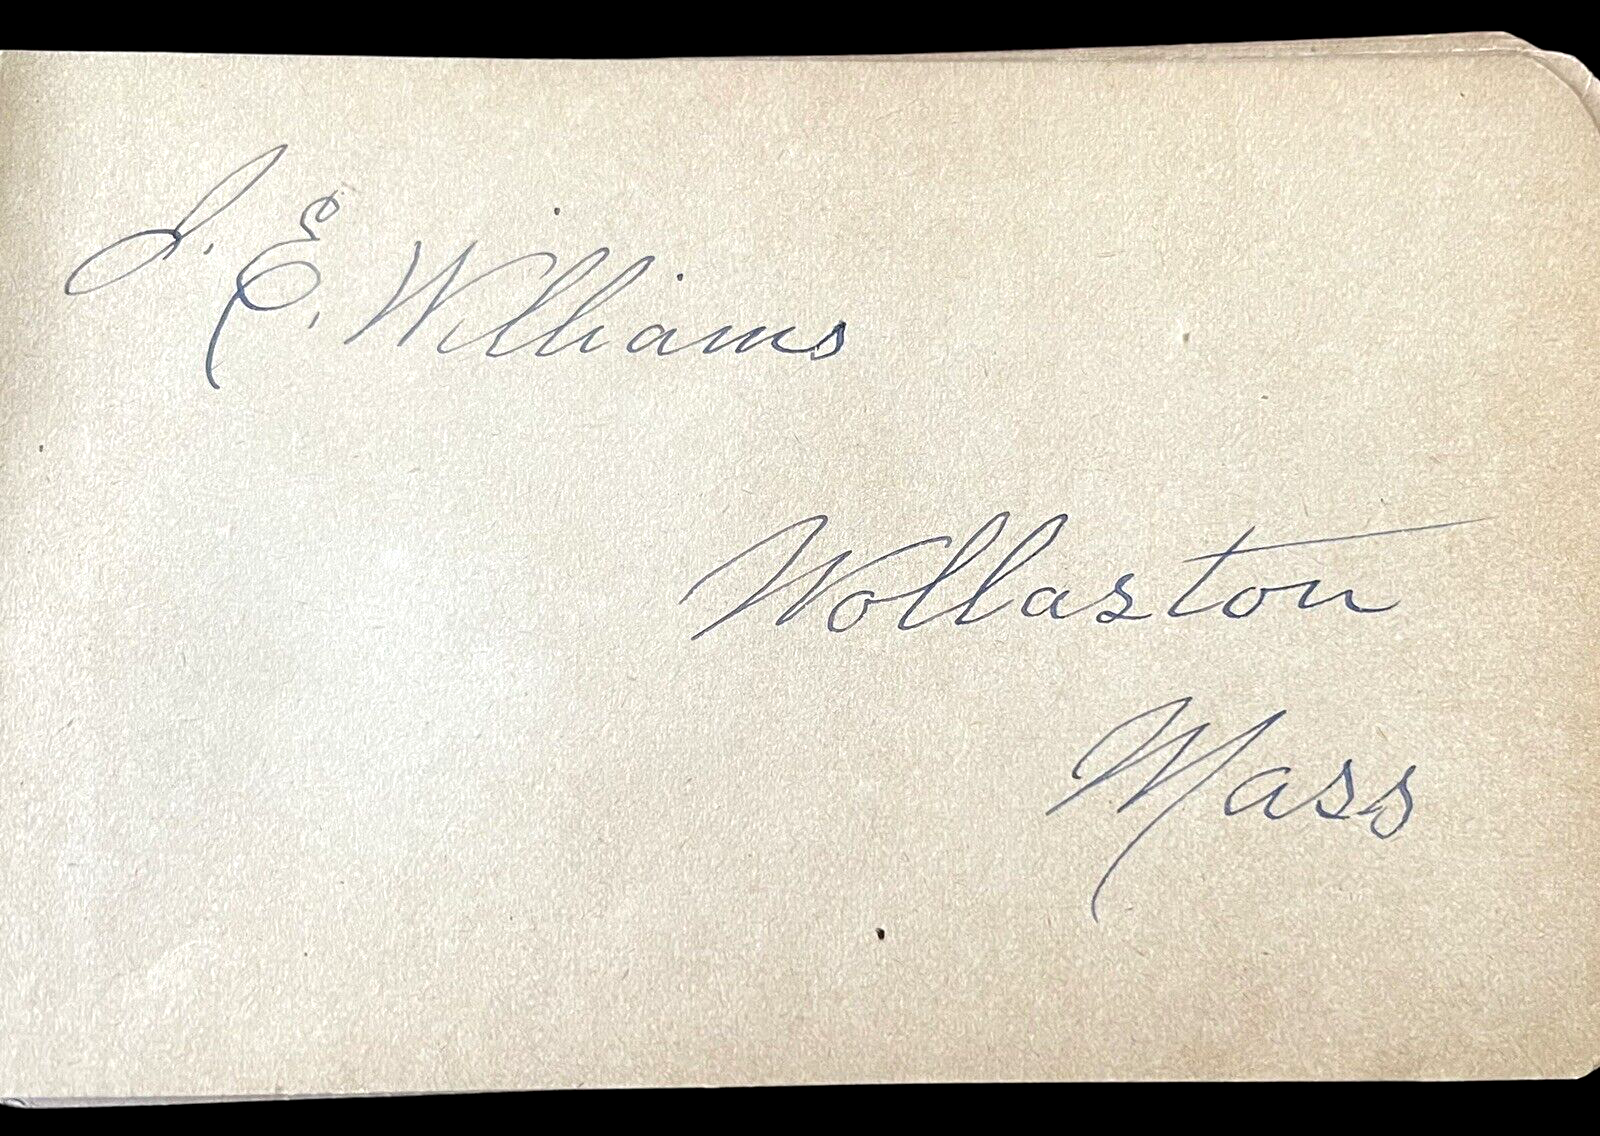 S. E. Williams
Wollaston
Mass